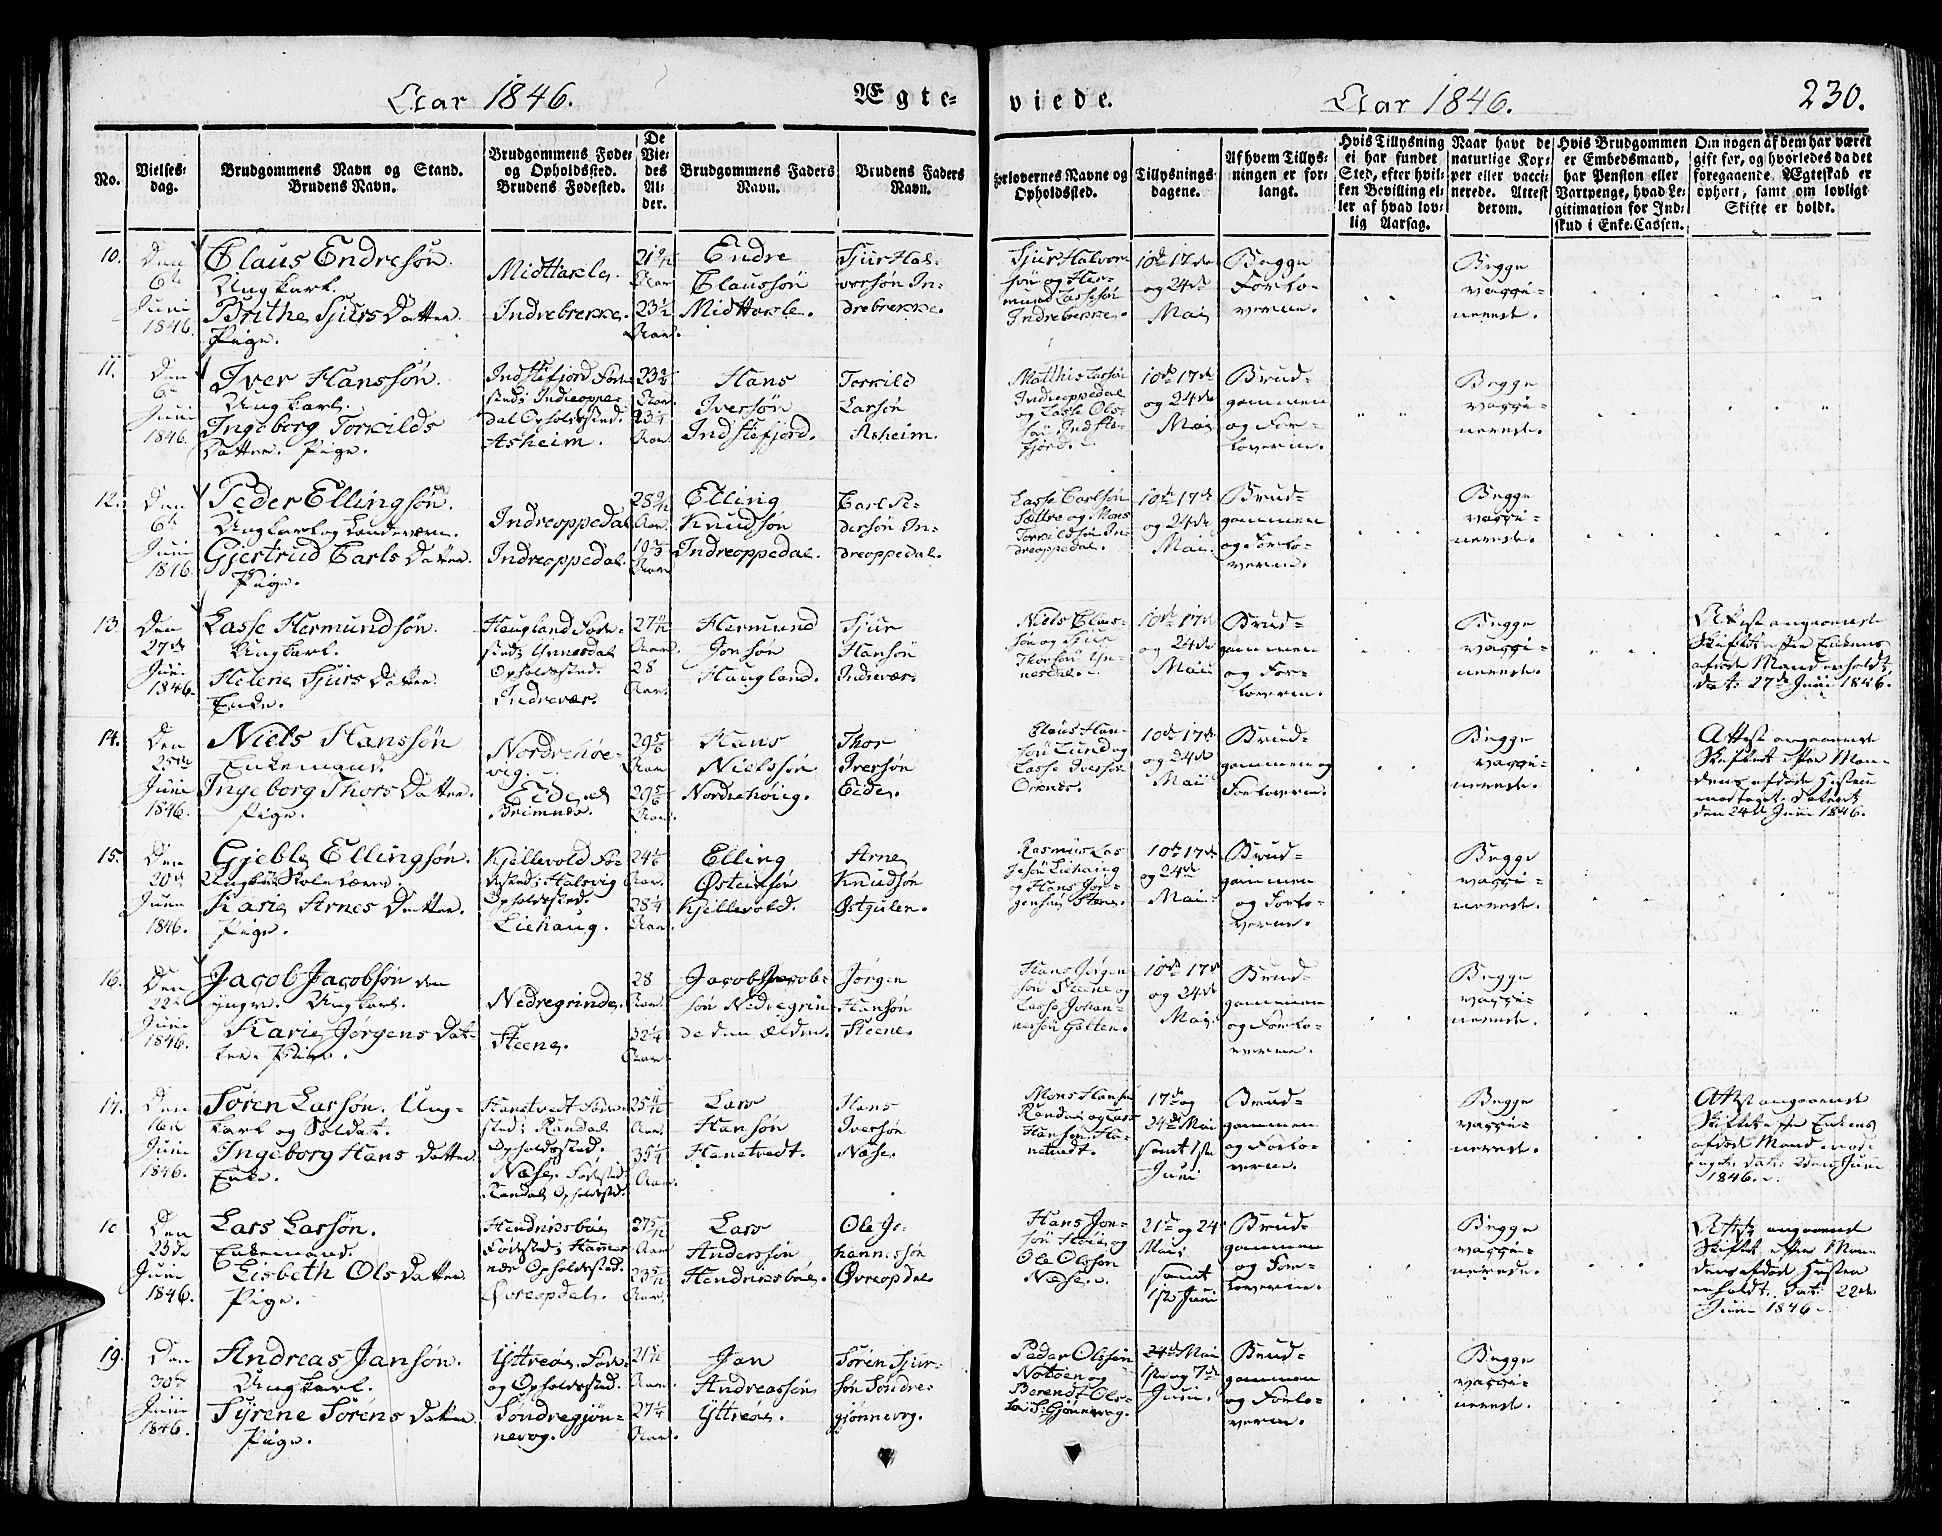 Aar 1846.
Ægte-
viede.
Aar 1846.
230.
No.
Vielses-
dag.
Brudgommens Navn og Stand.
Brudens Navn.
Brudgommens Føde-
og Opholdssted.
Brudens Fødested.
De
Vie-
des
Al-
der.
Brudgommens Faders
Navn.
Brudens Faders
Navn.
Forlovernes Navne og
Opholdssted.
Tillysnings-
dagene.
Af hvem Tillys-
ningen er for-
langt.
Hvis Tillysning
ei har fundet
Sted, efter hvil-
ken Bevilling el-
ler af hvad lov-
lig Aarsag.
Naar havt de
naturlige Kop-
per eller vacci-
nerede. Attest
derom.
Hvis Brudgommen
er Embedsmand,
har Pension eller
Vartpenge, hvad Le-
gitimation for Ind-
skud i Enke-Cassen.
Om nogen af dem har været
gift før, og hvorledes da det
foregaaende Ægteskab er
ophørt, samt om lovligt
Skifte er holdt.
10.
Den
6te
Juni
1846.
Claus Endresøn.
Ungkarl.
Brithe Sjurs Datter.
Pige.
Midttakle.
Indrebrekke.
Aar.
23½
Aar.
Endre
Claussøn
Midttakle.
Sjur Hal-
versøn In-
drebrekke.
Sjur Halvor-
søn og Her-
mund Lassesøn
Indrebrekke.
10de 17de
og 24de
Mai
Begge
Forlo-
verne.
Begge
vacci-
nerede.
11.
Den
6te
Juni
1846.
Iver Hanssøn.
Ungkarl.
Ingeborg Torkilds
Datter. Pige.
Indstefjord Føde-
sted; Indreoppe-
dal Opholdssted.
Asheim.
Aar.
23¼
Aar.
Hans
Iversøn
Indstefjord.
Torkild
Larsøn
Asheim.
Matthis Larsøn
Indreoppedal
og Lasse Ols-
søn Indste-
fjord.
10de 17de
og 24de
Mai
Brud-
gommen
og For-
loverne.
Begge
vacci-
nerede.
12.
Den
6te
Juni
1846.
Peder Ellingsøn.
Ungkarl og Landeværn.
Gjertrud Carls Datter.
Pige.
Indreoppedal
Indreoppedal.
Aar.
Aar.
Elling
Knudsøn
Indreoppedal.
Carl Pe-
dersøn In-
dreoppedal.
Lasse Carlsøn
Sættre og Mons
Torkildsøn In-
dreoppedal.
10de 17de
og 24de
Mai.
Brud-
gommen
og Forlo-
verne.
Begge
vacci-
nerede.
13.
Den
27de
Juni
1846.
Lasse Hermundsøn.
Ungkarl.
Helene Sjurs Datter.
Enke.
Haugland Føde-
sted; Ynnesdal
Opholdssted.
Indrevær.
Aar.
28
Aar.
Hermund
Jonsøn
Haugland.
Sjur
Hansøn
Indrevær.
Niels Claus-
søn og Sjur
Thorsøn Yn-
nesdal.
10de 17de
24de
Mai
Brud-
gommen
og For-
loverne.
Begge
vacci-
nerede.
Attest angaaende
Skiftet efter Enkens
afdøde Mand er holdt,
dat: 27de Juni 1846.
14.
Den
25de
Juni
1846.
Niels Hanssøn
Enkemand.
Ingeborg Thors Datter.
Pige.
Nordrehøe-
vig.
Eide
Brimnes.
29⅚
Aar
29⅚
Aar.
Hans
Nielssøn
Nordrehovig.
Thor
Iversøn
Eide.
Claus Han-
søn Lund og
Lasse Iversøn
Ornes.
10de 17de
og 24de
Mai
Brud-
gommen og
Forloverne.
Begge
vacci-
nerede.
Attest angaaende
Skiftet efter Man-
dens afdøde Hustru
modtaget. dateret
den 24de Juni 1846.
15.
Den
20de
Juni
1846.
Gjeble Ellingsøn.
Karie Arnes Datter.
Pige.
Kjellevold Fø-
dested; Halsvig
Opholdssted.
Liehaug.
24⅙
Aar.
28¼
Aar.
Elling
Østensøn
Kjellevold.
Arne
Knudsøn
Østgulen.
Rasmus Las-
sesøn Liehaug
og Hans Jør-
gensøn Steene.
10de 17de
og 24de
Mai.
Brud-
gommen
og Forlo-
verne.
Begge
vacci-
nerede.
16.
Den
22de
Juni
1846.
Jacob Jacobsøn den
yngre. Ungkarl.
Karie Jørgens Dat-
ter. Pige.
Nedregrinde.
Steene.
28
Aar.
32¼
Aar.
Jacob Jacob-
søn Nedregrin-
de den Ældre.
Jørgen
Hansøn
Steene.
Hans Jørgen-
søn Steene og
Lasse Johan-
nessøn Gotten.
10de 17de
og 24de
Mai.
Brud-
gommen
og Forlo-
verne.
Begge
vacci-
nerede.
17.
Den
Juni
1846.
Søren Larsøn. Ung-
karl og Soldat.
Ingeborg Hans Datter
Enke.
Hanetvedt Føde-
sted; Randal
Opholdssted.
Næse. Fødested
Randal Opholdssted.
Aar.
35¼
Aar.
Lars
Hansøn
Hanetvedt.
Hans
Iversøn
Næse.
Mons Hansøn
Randal og Lars
Hansøn Ha-
netvedt.
17de og
24de Mai
samt 1ste
Juni
Brud-
gommen
og Forlo-
verne.
Begge
vacci-
nerede.
Attest angaaende
Skiftet efter Enkens
afdøde Mand mod-
Juni
1846.
Den
23de
Juni
1846.
Lars Larsøn.
Enkemand.
Lisbeth Ols Datter
Pige.
Hendriksbøe
Fødested; Hammer
Opholdssted.
Aar
Aar.
Lars
Anderssøn
Hendriksbøe.
Ole Jo-
hannessøn
Øvreopdal.
Hans Jon-
søn Høie og
Ole Olsson
Næse.
21de og 24
Mai
samt
1ste Juni
Brud-
gommen
og For-
loverne.
Begge
vacci-
nerede.
Attest angaaende
Skiftet efter Man-
dens afdøde Hustru
er holdt. dat: 22de
Juni 1846.
19.
Den
30te
Juni
1846.
Andreas Jansøn.
Ungkarl.
Syrene Sørens Datter
Pige.
Yttreøe. Føde-
og Opholdssted.
Søndregjøn-
nevog.
Aar.
27¼
Aar.
Jan
Andreassøn
Yttreøe.
Søren Sjur-
søn Søndre-
gjønnevog.
Peder Olssøn
Notøen og
Berendt Ols-
søn S: Gjønnevog.
24de Mai
1ste og 7de
Juni.
Brud-
gommen
og Forlo-
verne.
Begge
vacci-
nerede.